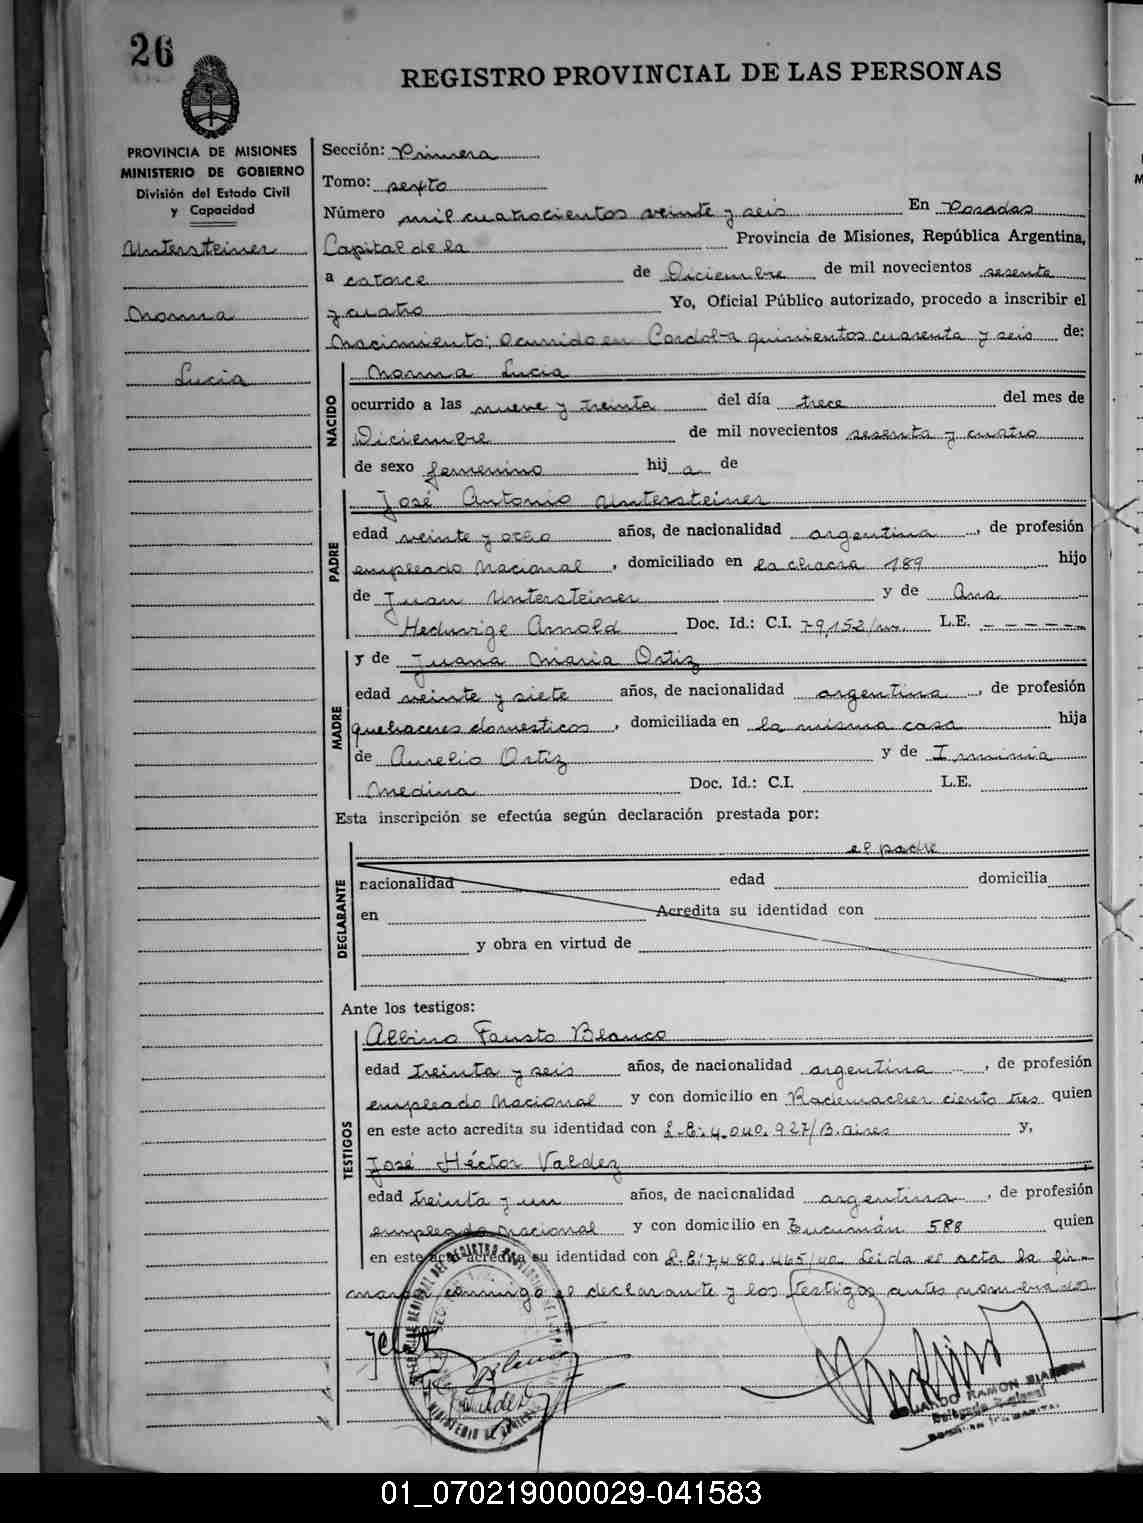 26
REGISTRO PROVINCIAL DE LAS PERSONAS
PROVINCIA DE MISIONES
MINISTERIO DE GOBIERNO
División del Estado Civil
y Capacidad
Untersteiner
Norma
Lucia
Sección: Primera
Tomo: sexto
Número mil cuatrocientos veinte y seis En Posadas
Capital de la Provincia de Misiones, República Argentina,
a catorce de Diciembre de mil novecientos sesenta
y cuatro Yo, Oficial Público autorizado, procedo a inscribir el
Nacimiento; ocurrido en Cordoba quinientos cuarenta y seis de:
NACIDO
Norma Lucia
ocurrido a las nueve y treinta del día trece del mes de
Diciembre de mil novecientos sesenta y cuatro
de sexo femenino hij a de
PADRE
José Antonio Untersteiner
edad veinte y ocho años, de nacionalidad argentina, de profesión
empleado Nacional, domiciliado en la chacra 189 hijo
de Juan Untersteiner y de Ana
Heduvige Arnold Doc. Id.: C.I. 79,152/ L.E. - - - - - -
MADRE
y de Juana Maria Ortiz
edad veinte y siete años, de nacionalidad argentina, de profesión
quehaceres domesticos, domiciliada en la misma casa hija
de Aurelio Ortiz y de Irminia
Medina Doc. Id.: C.I. L.E.
Esta inscripción se efectúa según declaración prestada por:
DECLARANTE
el padre
nacionalidad edad domicilia
en Acredita su identidad con
y obra en virtud de
Ante los testigos:
TESTIGOS
Albino Fausto Blanco
edad treinta y seis años, de nacionalidad argentina, de profesión
empleado Nacional y con domicilio en Rademacher ciento tres quien
en este acto acredita su identidad con L.E: 4.040.927/B.aires y,
José Héctor Valdez
edad treinta y un años, de nacionalidad argentina, de profesión
empleado Nacional y con domicilio en Tucumán 588 quien
en este acto acredita su identidad con L.E: 7,480,465/ Leida el acta la fir-
man conmigo el declarante y los testigos antes nombrados
RAMON
01_070219000029-041583